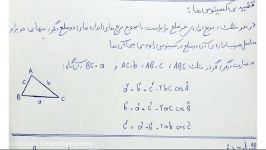 قضیه‌ی کسینوس‌ها:
در هر مثلث، مربع اندازه‌ی هر ضلع برابر است با مجموع مربع‌های اندازه‌های دو ضلع دیگر، منهای دو برابر
حاصل ضرب اندازه‌ی آن دو ضلع در کسینوس زاویه‌ی بین آن‌ها.
به عبارت دیگر، اگر در مثلث ABC، AB=c، AC=b و BC=a آن‌گاه:
A
c
b
B
a
C
a² = b² + c² - ۲bc cos Â
b² = a² + c² - ۲ac cos B̂
c² = a² + b² - ۲ab cos Ĉ